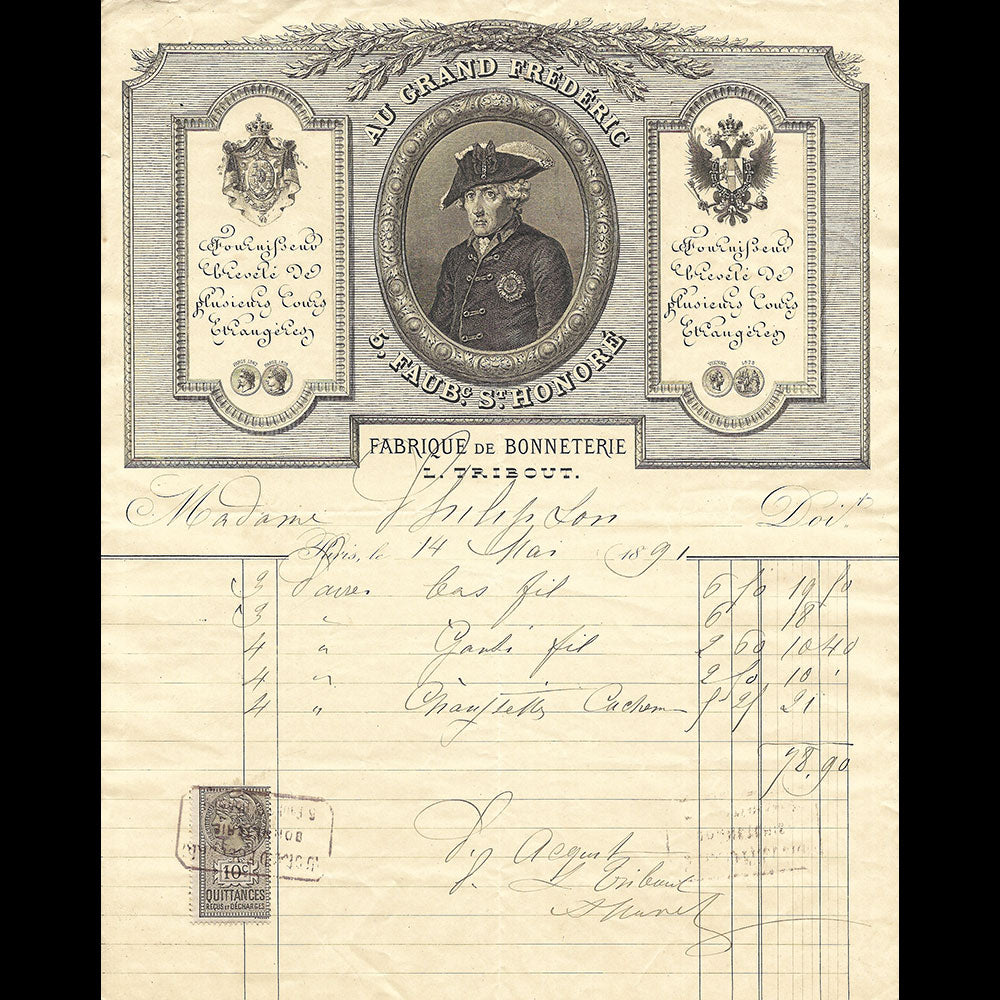 AU GRAND FRÉDÉRIC
Fournisseur
breveté de
plusieurs Cours
Etrangères
Fournisseur
breveté de
plusieurs Cours
Etrangères
VIENNE 1873
5, FAUBG. ST HONORÉ
FABRIQUE DE BONNETERIE
L. TRIBOUT.
Madame Philipson Doit
Paris, le 14 Mai 1891
3 Paires bas fil 6 50 19 50
3 " 6 18
4 " Gants fil 2 60 10 40
4 " 2 50 10
4 " Chaussettes Cachem 5 25 21
78.90
Acquit
L Tribout
10c
QUITTANCES
REÇUS ET DÉCHARGES